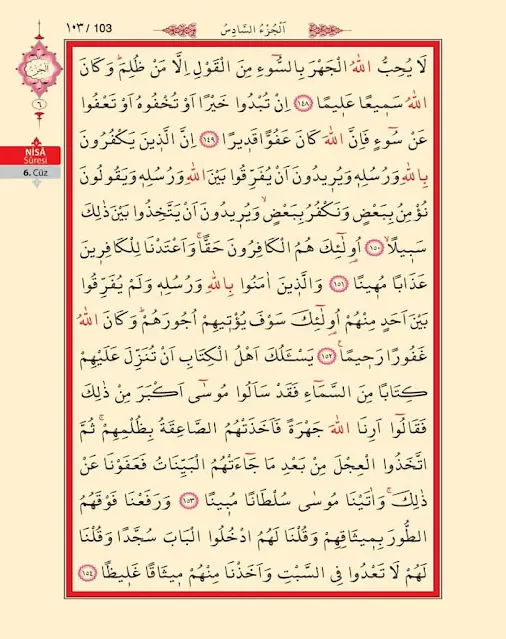 ١٠٣ / 103
اَلْجُزْءُ السَّادِسُ
اَلْجُزْءُ
٦
NİSÂ
Sûresi
6. Cüz
لَا يُحِبُّ اللّٰهُ الْجَهْرَ بِالسُّٓوءِ مِنَ الْقَوْلِ اِلَّا مَنْ ظُلِمَۜ وَكَانَ
اللّٰهُ سَم۪يعًا عَل۪يمًا ﴿١٤٨﴾ اِنْ تُبْدُوا خَيْرًا اَوْ تُخْفُوهُ اَوْ تَعْفُوا
عَنْ سُٓوءٍ فَاِنَّ اللّٰهَ كَانَ عَفُوًّا قَد۪يرًا ﴿١٤٩﴾ اِنَّ الَّذ۪ينَ يَكْفُرُونَ
بِاللّٰهِ وَرُسُلِه۪ وَيُر۪يدُونَ اَنْ يُفَرِّقُوا بَيْنَ اللّٰهِ وَرُسُلِه۪ وَيَقُولُونَ
نُؤْمِنُ بِبَعْضٍ وَنَكْفُرُ بِبَعْضٍۙ وَيُر۪يدُونَ اَنْ يَتَّخِذُوا بَيْنَ ذٰلِكَ
سَب۪يلًاۙ ﴿١٥٠﴾ اُو۬لٰٓئِكَ هُمُ الْكَافِرُونَ حَقًّاۚ وَاَعْتَدْنَا لِلْكَافِر۪ينَ
عَذَابًا مُه۪ينًا ﴿١٥١﴾ وَالَّذ۪ينَ اٰمَنُوا بِاللّٰهِ وَرُسُلِه۪ وَلَمْ يُفَرِّقُوا
بَيْنَ اَحَدٍ مِنْهُمْ اُو۬لٰٓئِكَ سَوْفَ يُؤْت۪يهِمْ اُجُورَهُمْۜ وَكَانَ اللّٰهُ
غَفُورًا رَح۪يمًا۟ ﴿١٥٢﴾ يَسْـَٔلُكَ اَهْلُ الْكِتَابِ اَنْ تُنَزِّلَ عَلَيْهِمْ
كِتَابًا مِنَ السَّمَٓاءِ فَقَدْ سَاَلُوا مُوسٰٓى اَكْبَرَ مِنْ ذٰلِكَ
فَقَالُٓوا اَرِنَا اللّٰهَ جَهْرَةً فَاَخَذَتْهُمُ الصَّاعِقَةُ بِظُلْمِهِمْۚ ثُمَّ
اتَّخَذُوا الْعِجْلَ مِنْ بَعْدِ مَا جَٓاءَتْهُمُ الْبَيِّنَاتُ فَعَفَوْنَا عَنْ
ذٰلِكَۚ وَاٰتَيْنَا مُوسٰى سُلْطَانًا مُب۪ينًا ﴿١٥٣﴾ وَرَفَعْنَا فَوْقَهُمُ
الطُّورَ بِم۪يثَاقِهِمْ وَقُلْنَا لَهُمُ ادْخُلُوا الْبَابَ سُجَّدًا وَقُلْنَا
لَهُمْ لَا تَعْدُوا فِي السَّبْتِ وَاَخَذْنَا مِنْهُمْ م۪يثَاقًا غَل۪يظًا ﴿١٥٤﴾